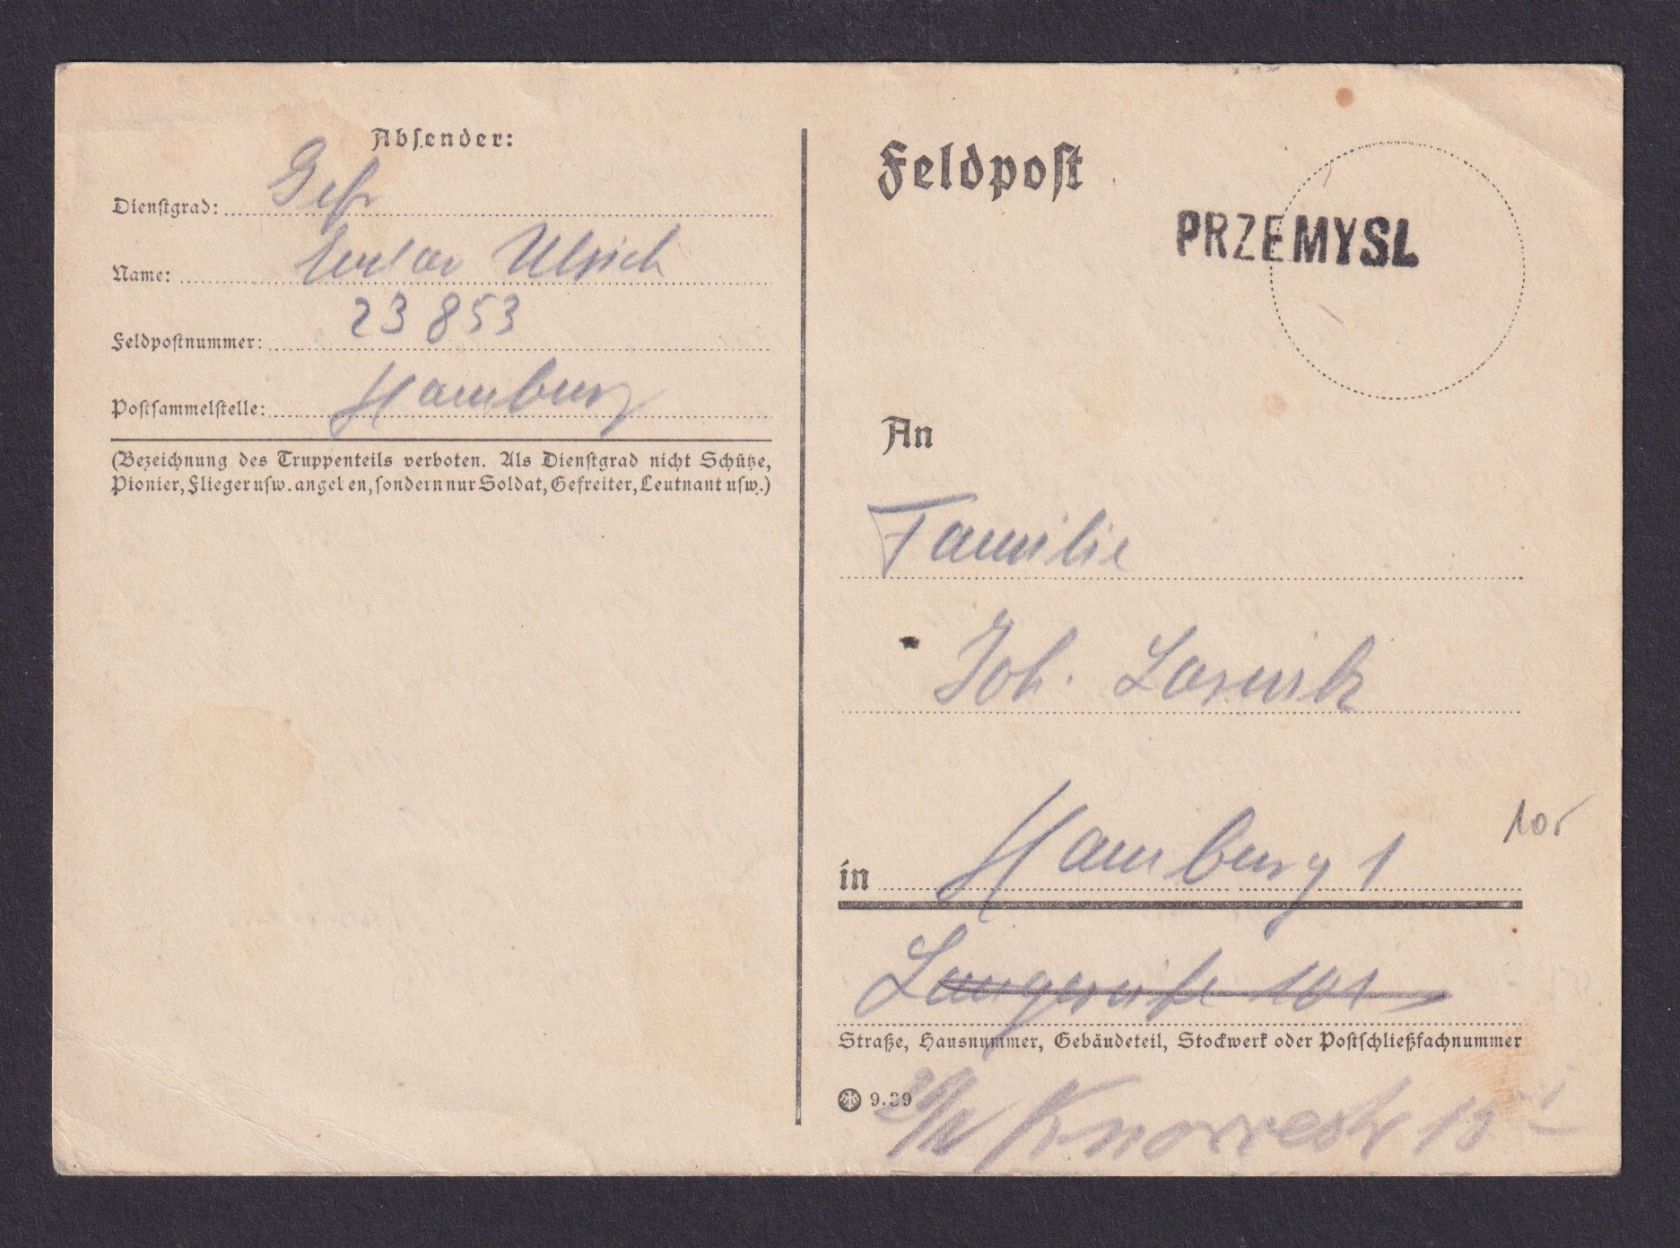 Absender:
Dienstgrad: Gefr
Name: Ulrich
Feldpostnummer: 23853
Postsammelstelle: Hamburg
(Bezeichnung des Truppenteils verboten. Als Dienstgrad nicht Schütze,
Pionier, Flieger usw. angel en, sondern nur Soldat, Gefreiter, Leutnant usw.)
Feldpost
PRZEMYSL
An
Familie
Joh.
in Hamburg 1
101
Straße, Hausnummer, Gebäudeteil, Stockwerk oder Postschließfachnummer
9.39
Knorrestr